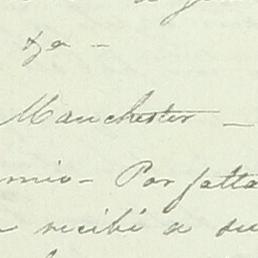 Manchester -
mio - Por falta
recibi a su